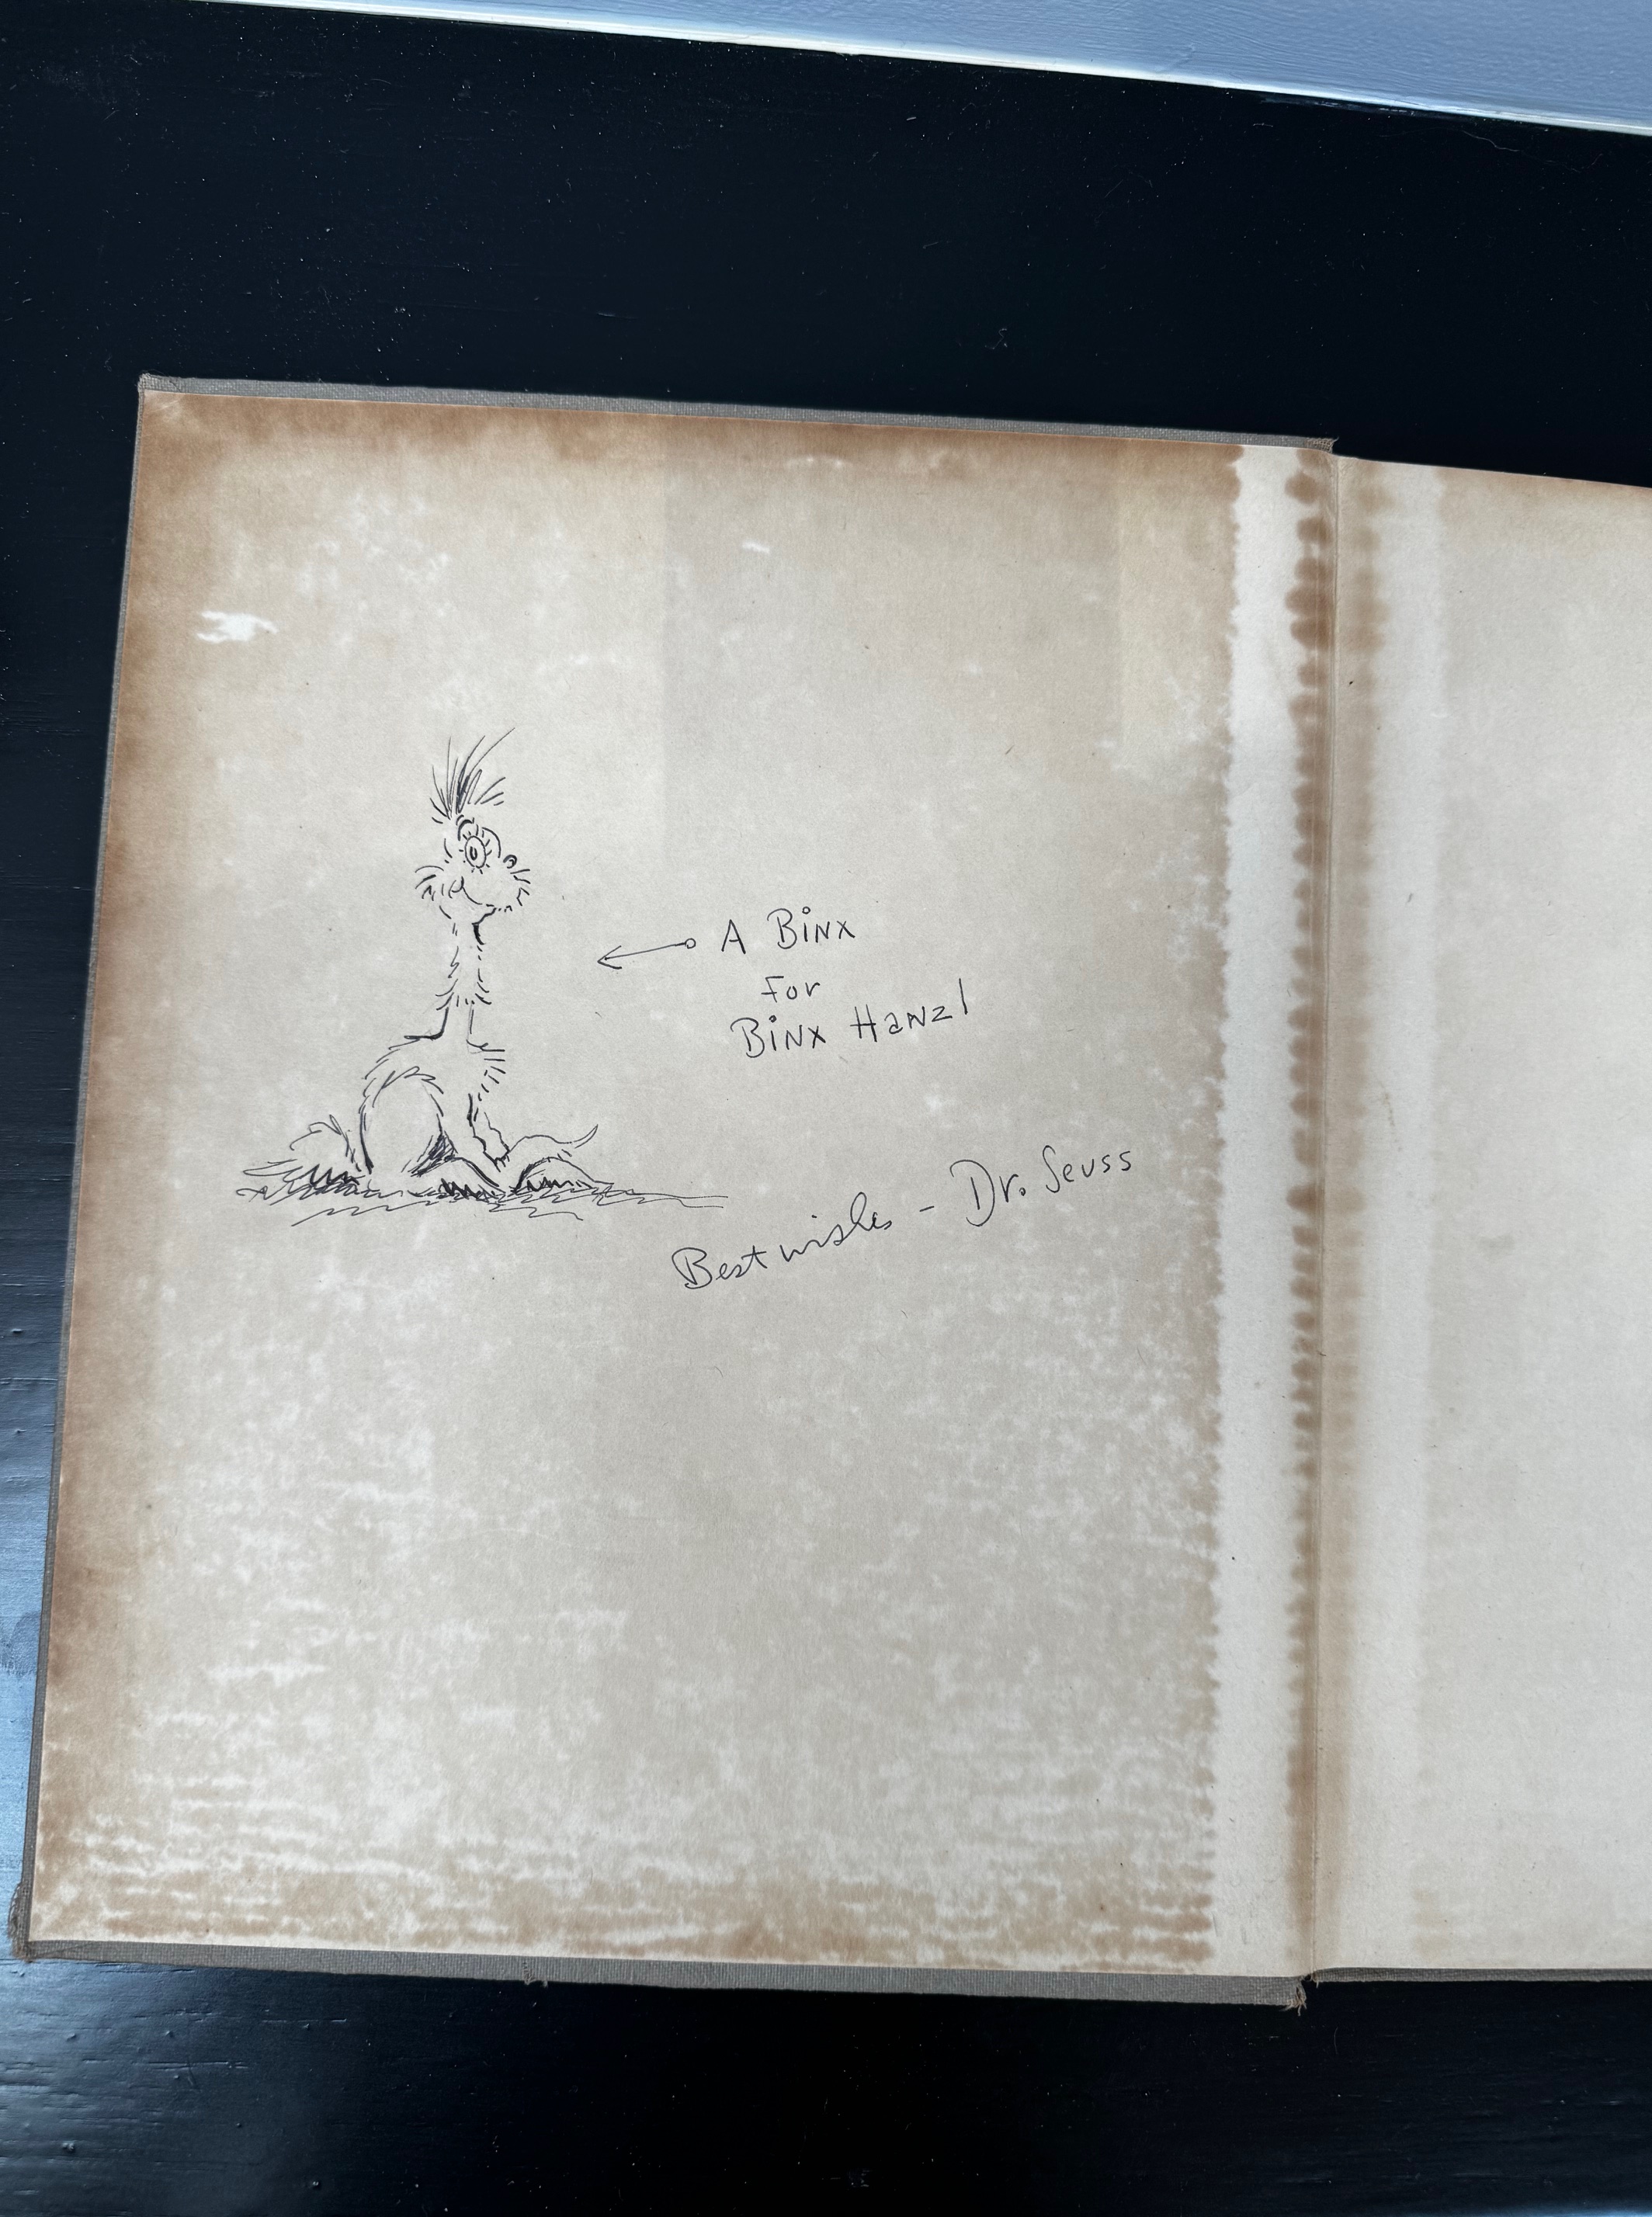 A Binx
For
Binx Hanzl
Best wishes - Dr. Seuss